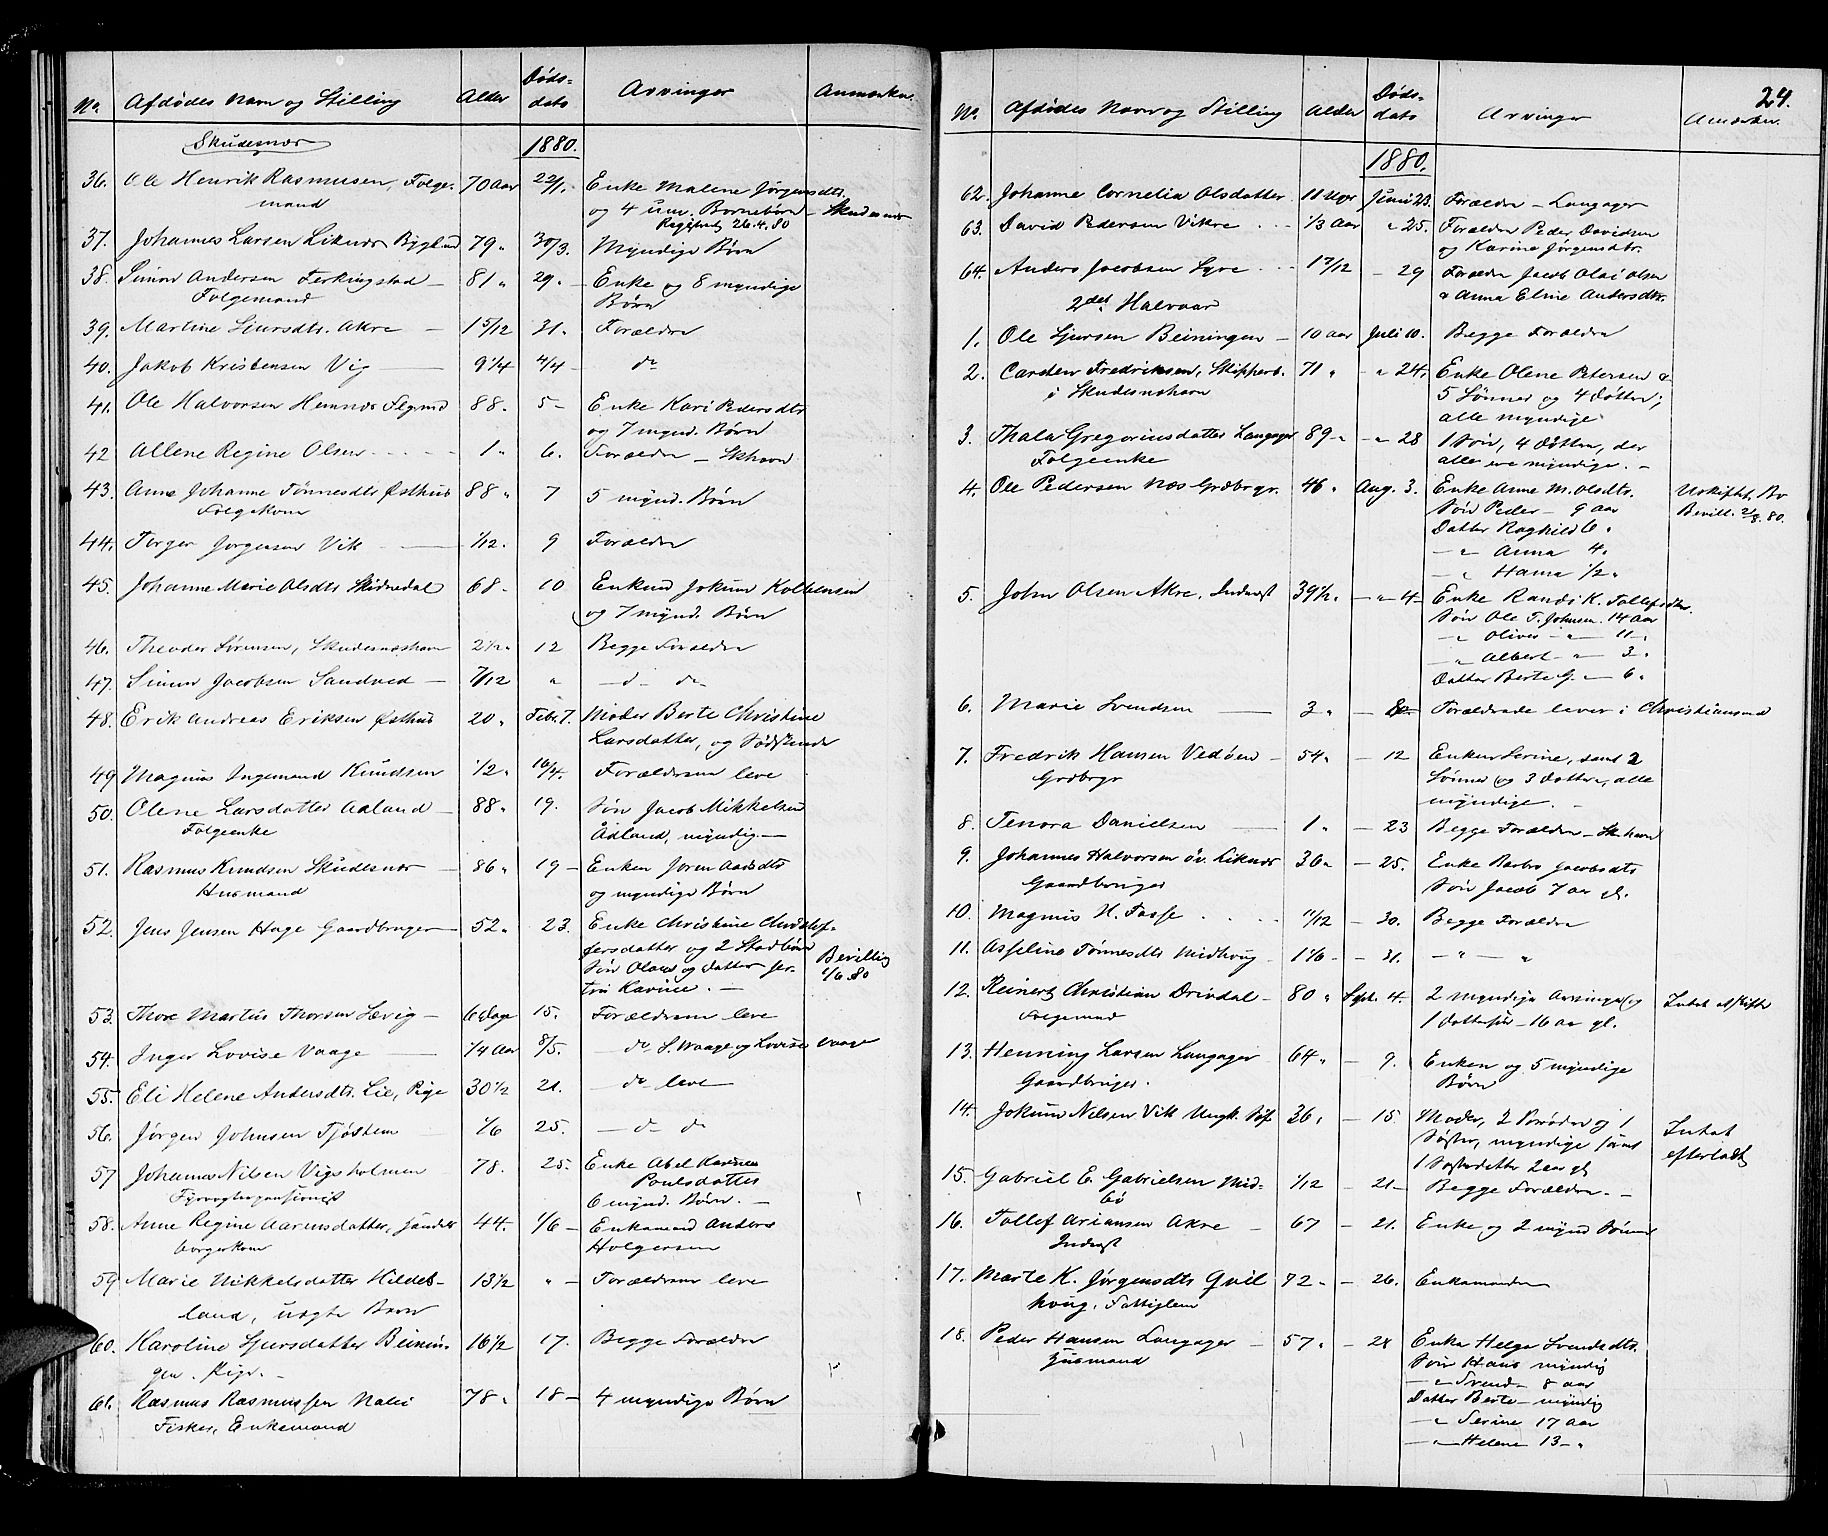 No. Afdödes Navn og Stilling Alder Döds-
dato Arvinger Anmærkn.
Skudesnæs 1880.
36. Ole Henrik Rasmusen, Folge- 70 Aar 22/1. Enke Malene Jörgensdtr.
mand og 4 um. Börnebörn – Skudesnæs
26.4.80
37. Johannes Larsen Liknæs 79 " 30/3. Myndige Börn
38. Simon Andersen Ferkingstad – 81 " 29 " – Enke og 8 myndige
Folgemand Börn
39. Martine Sjursdtr. Akre – 1 5/12 31. Forældre
40. Jakob Kristensen Vig 9 1/4 4/4 – do
41. Ole Halvorsen Hemnæs 88. 5 – Enke Kari Pedersdtr
og 7 mynd. Börn
42 Allene Regine Olsen 1 " 6. Forældre – Skhavn
43. Anne Johanne Tönnesdtr Östhus 88 " 7 5 mynd. Börn
Folgekone
44. Torger Jörgensen Vik 1/12. 9 Forældre
45. Johanne Marie Olsdtr 68 – 10 Enkem Jokum Kolbensen
og 7 mynd. Börn
46. Theodor Sörensen, Skudesnæshavn 2 1/2 " 12 Begge Forældre
47. Simon Jacobsen Sandved – 7/12 " – d – do
48. Erik Andreas Eriksen Östhus 20 " Febr. 7. Moder Berte Christine
Larsdatter, og Södskende
49 Magnus Ingemand Knudsen 1/2 " 16/4. Forældrene leve
50. Olene Larsdatter Aaland – 88 " 19. Sön Jacob Mikkelsen
Folgeenke Ådland, myndig. –
51. Rasmus Knudsen Skudesnæs – 86 " 19 – Enken Joren Aadsdtr
Husmand og myndige Börn
52. Jens Jensen Hage Gaardbruger – 52 " 23. Enke Christine Christof-
fersdatter og 2 Stedbörn
Sön Olaus og datter Ser- Bevilling
ine Karine. – 1/6.80
53. Thore Martus Thorsen Sevig – 6 Dage 15. Forældrene leve
54. Inger Lovise Vaage 1/4 Aar 8/5. – do S. Waage og Lovise Vaage
55. Eli Helene Andersdtr. Lie, Pige 30 1/2 21. – do leve
56. Jörgen Johnsen Tjöstem 1/6 25. – d – do
57 Johannes Nilsen Vigsholmen 78. 25. Enke Abel Karine
Fyrvogterpensionist Poulsdatter
6 mynd. Börn. –
58. Anne Regine Aarensdatter, 44. 1/6 – Enkemand Anders
borgerkone Holgersen
59 Marie Mikkelsdatter Hildes- 13 1/2 " – Forældrene leve
land, uægte Barn
60. Karoline Sjursdatter Beinin- 16 1/2 17. Begge Forældre
gen. Pige. –
61. Rasmus Rasmussen Nalei 78 " 18 – 4 myndige Börn
Fisker, Enkemand
24.
No. Afdödes Navn og Stilling Alder Döds-
dato Arvinger Anmærkn.
1880.
62. Johanne Cornelia Olsdatter 11 Uger Juni 23. Forældre – Langager
63. David Pedersen Vikre 1/3 Aar " 25. Forældre Peder Davidsen
og Karine Jörgensdtr.
64. Anders Jacobsen Syre 17/12 – 29 Forældre Jacob Olai Olsen
& Anna Eline Andersdtr.
2det Halvaar
1. Ole Sjursen Beiningen – 10 aar Juli 10. Begge Forældre
2. Carsten Fredriksen, Skipperb. 71 " – " 24. Enke Olene Petersen &
i Skudesnæshavn 5 Sönner og 4 döttre;
alle myndige
3. Thala Gregoriusdatter Langager 89 – " – " 28 1 Sön, 4 döttre, der
Folgeenke alle ere myndige. –
4. Ole Pedersen Næs Grdbrgr. 46 " Aug. 3. Enke Anne M. Olsdtr. Uskiftet Bo
Sön Peder – 9 aar Bevill. 2/8.80.
Datter Ragnild 6 "
– " Anna 4 "
– " Hanna 1/2 "
5. John Olsen Akre, Inderst 39 1/2 " – " 4 – Enke Randi K. Tollefsdtr.
Sön Ole T. Johnsen 14 aar
– " Oliver – " – 11 "
– " Albert – " – 3 "
Datter Berte G. – " – 6 "
6. Marie Svendsen 3 " – Forældrene lever i Christiansand
7. Fredrik Hansen Vedöen – 54 " – 12 Enken Serine, samt 2
Grdbrgr Sönner og 3 döttre, alle
myndige. –
8. Tenora Danielsen 1 " – 23 Begge Forældre – Sk.havn
9. Johannes Halvorsen öv. Liknæs 30 " – 25. Enke Barbro Jacobsdtr
Gaardbruger Sön Jacob 7 aar gl.
10. Magnus H. Fasse 11/12 – 30. Begge Forældre
11. Asseline Tönnesdtr Midhoug – 1 1/6 – – 31. – " – "
12. Reinert Christian Drivdal – 80 " Sept. 4. 2 myndige Arvinger og Intet at skifte
Folgemand 1 datter – 16 aar gl.
13. Henning Larsen Langager 64 " – 9. Enken og 5 myndige
Gaardbruger. Börn
14. Jokum Nilsen Vik Ungk. 36. – 15. Moder, 2 Brödre og 1 Intet
Söster, myndige samt efterladt
1 Sösterdatter 2 aar gl
15. Gabriel E. Gabrielsen Mid- 1/12 – 21 – Begge Forældre. –
bö
16. Tollef Ariansen Akre – 67 – 21. Enke og 2 mynd Sönner
Inderst
17. Marte K. Jörgensdtr Qvil 72 " – 26. Enkemanden
houg, Fattiglem
18. Peder Hansen Langager – 57 " – 28 Enke Helga Svendsdtr.
Husmand Sön Hans myndig
– " Svend – 8 aar
Datter Berte – myndig
– " Serine 17 aar
– " Helene 13 – "